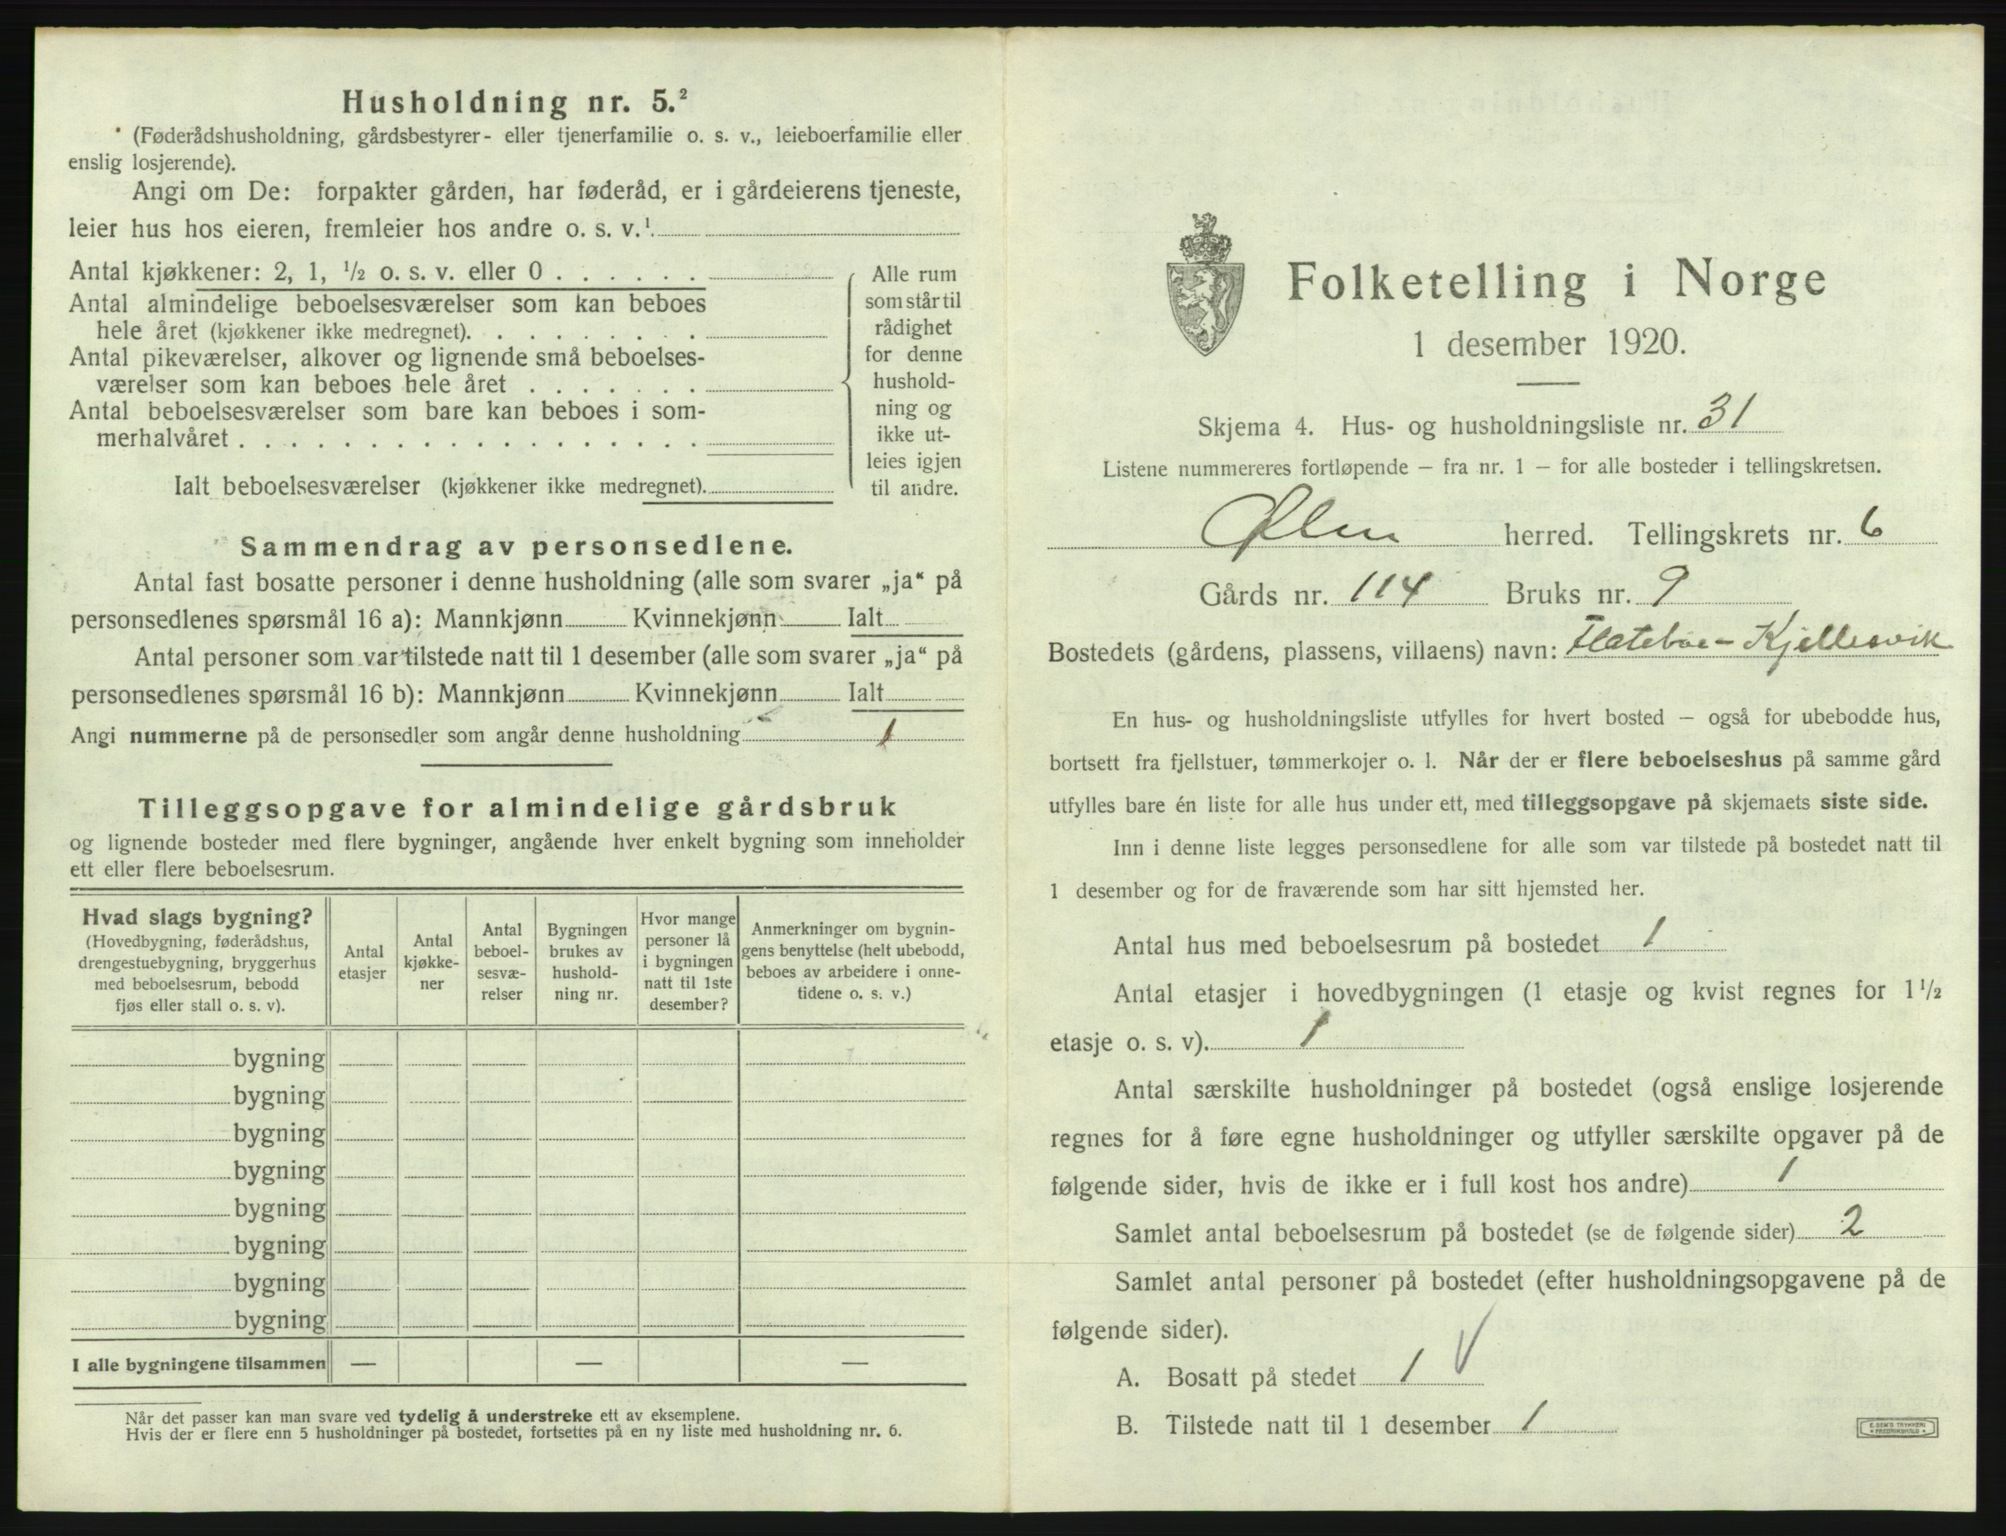 Husholdning nr. 5.²
(Føderådshusholdning, gårdsbestyrer- eller tjenerfamilie o. s. v., leieboerfamilie eller
enslig losjerende).
Angi om De: forpakter gården, har føderåd, er i gårdeierens tjeneste,
leier hus hos eieren, fremleier hos andre o. s. v.¹
Antal kjøkkener: 2, 1, ½ o. s. v. eller 0 . . . . . .
Antal almindelige beboelsesværelser som kan beboes
hele året (kjøkkener ikke medregnet). . . . . . . . .
Antal pikeværelser, alkover og lignende små beboelses-
værelser som kan beboes hele året . . . . . . .
Antal beboelsesværelser som bare kan beboes i som-
merhalvåret . . . . . . . . . . . . . . . . . .
Ialt beboelsesværelser (kjøkkener ikke medregnet).
Alle rum
som står til
rådighet
for denne
hushold-
ning og
ikke ut-
leies igjen
til andre.
Sammendrag av personsedlene.
Antal fast bosatte personer i denne husholdning (alle som svarer „ja“ på
personsedlenes spørsmål 16 a): Mannkjønn Kvinnekjønn Ialt
Antal personer som var tilstede natt til 1 desember (alle som svarer „ja“ på
personsedlenes spørsmål 16 b): Mannkjønn Kvinnekjønn Ialt
Angi nummerne på de personsedler som angår denne husholdning 1
Tilleggsopgave for almindelige gårdsbruk
og lignende bosteder med flere bygninger, angående hver enkelt bygning som inneholder
ett eller flere beboelsesrum.
Hvad slags bygning?
(Hovedbygning, føderådshus,
drengestuebygning, bryggerhus
med beboelsesrum, bebodd
fjøs eller stall o. s. v).
Antal
etasjer
Antal
kjøkke-
ner
Antal
beboel-
sesvæ-
relser
Bygningen
brukes av
hushold-
ning nr.
Hvor mange
personer lå
i bygningen
natt til 1ste
desember?
Anmerkninger om bygnin-
gens benyttelse (helt ubebodd,
beboes av arbeidere i onne-
tidene o. s. v.)
bygning
bygning
bygning
bygning
bygning
bygning
bygning
bygning
I alle bygningene tilsammen — — —
Når det passer kan man svare ved tydelig å understreke ett av eksemplene.
Hvis der er flere enn 5 husholdninger på bostedet, fortsettes på en ny liste med husholdning nr. 6.
Folketelling i Norge
1 desember 1920.
Skjema 4. Hus- og husholdningsliste nr. 31
Listene nummereres fortløpende – fra nr. 1 – for alle bosteder i tellingskretsen.
Ølen herred. Tellingskrets nr. 6
Gårds nr. 114 Bruks nr. 9
Bostedets (gårdens, plassens, villaens) navn: Flatebøe - Kjellesvik
En hus- og husholdningsliste utfylles for hvert bosted – også for ubebodde hus,
bortsett fra fjellstuer, tømmerkojer o. l. Når der er flere beboelseshus på samme gård
utfylles bare én liste for alle hus under ett, med tilleggsopgave på skjemaets siste side.
Inn i denne liste legges personsedlene for alle som var tilstede på bostedet natt til
1 desember og for de fraværende som har sitt hjemsted her.
Antal hus med beboelsesrum på bostedet 1
Antal etasjer i hovedbygningen (1 etasje og kvist regnes for 1½
etasje o. s. v). 1
Antal særskilte husholdninger på bostedet (også enslige losjerende
regnes for å føre egne husholdninger og utfyller særskilte opgaver på de
følgende sider, hvis de ikke er i full kost hos andre) 1
Samlet antal beboelsesrum på bostedet (se de følgende sider) 2
Samlet antal personer på bostedet (efter husholdningsopgavene på de
følgende sider).
A. Bosatt på stedet 1 √
B. Tilstede natt til 1 desember 1
E. SEM'S TRYKKERI
FREDRIKSHALD